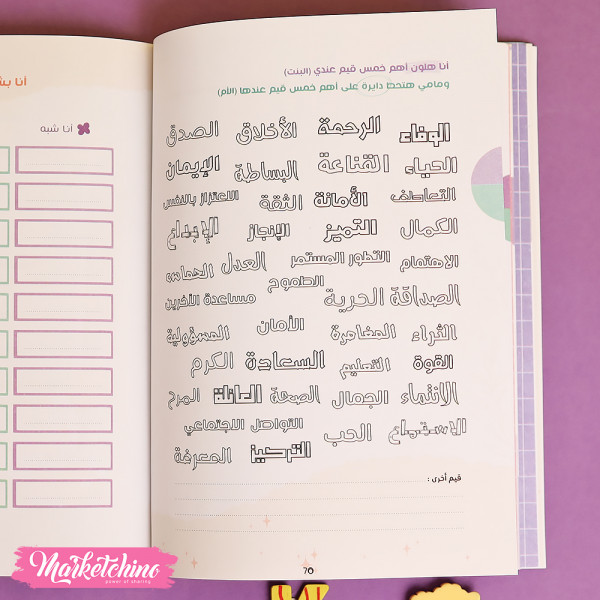 أنا هلون أهم خمس قيم عندي (البنت)
ومامي هتحط دايرة على أهم خمس قيم عندها (الأم)
الوفاء الرحمة الأخلاق الصدق
الحياء القناعة البساطة الإيمان
التعاطف الأمانة الثقة الاعتزاز بالنفس
الكمال التميز الإنجاز الإبداع
الاهتمام التطور المستمر العدل الحماس
الصداقة الحرية الطموح مساعدة الآخرين
الثراء المغامرة الأمان المسؤولية
القوة التعليم السعادة الكرم
الانتماء الجمال الصحة العائلة المرح
الاستماع الحب التواصل الاجتماعي
التركيز المعرفة
قيم أخرى :
70
أنا شبه
Marketchino
power of sharing